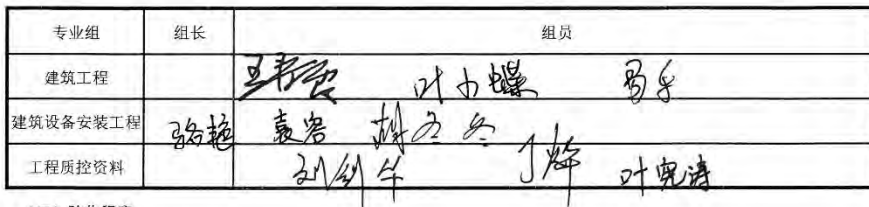 专业组 组长 组员
建筑工程 叶小蝶
建筑设备安装工程 骆艳 袁容 胡冬冬
工程质控资料 刘剑华 丁烨 叶宪涛